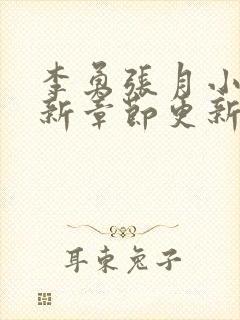 李勇張月小
新章節更新
耳東兔子